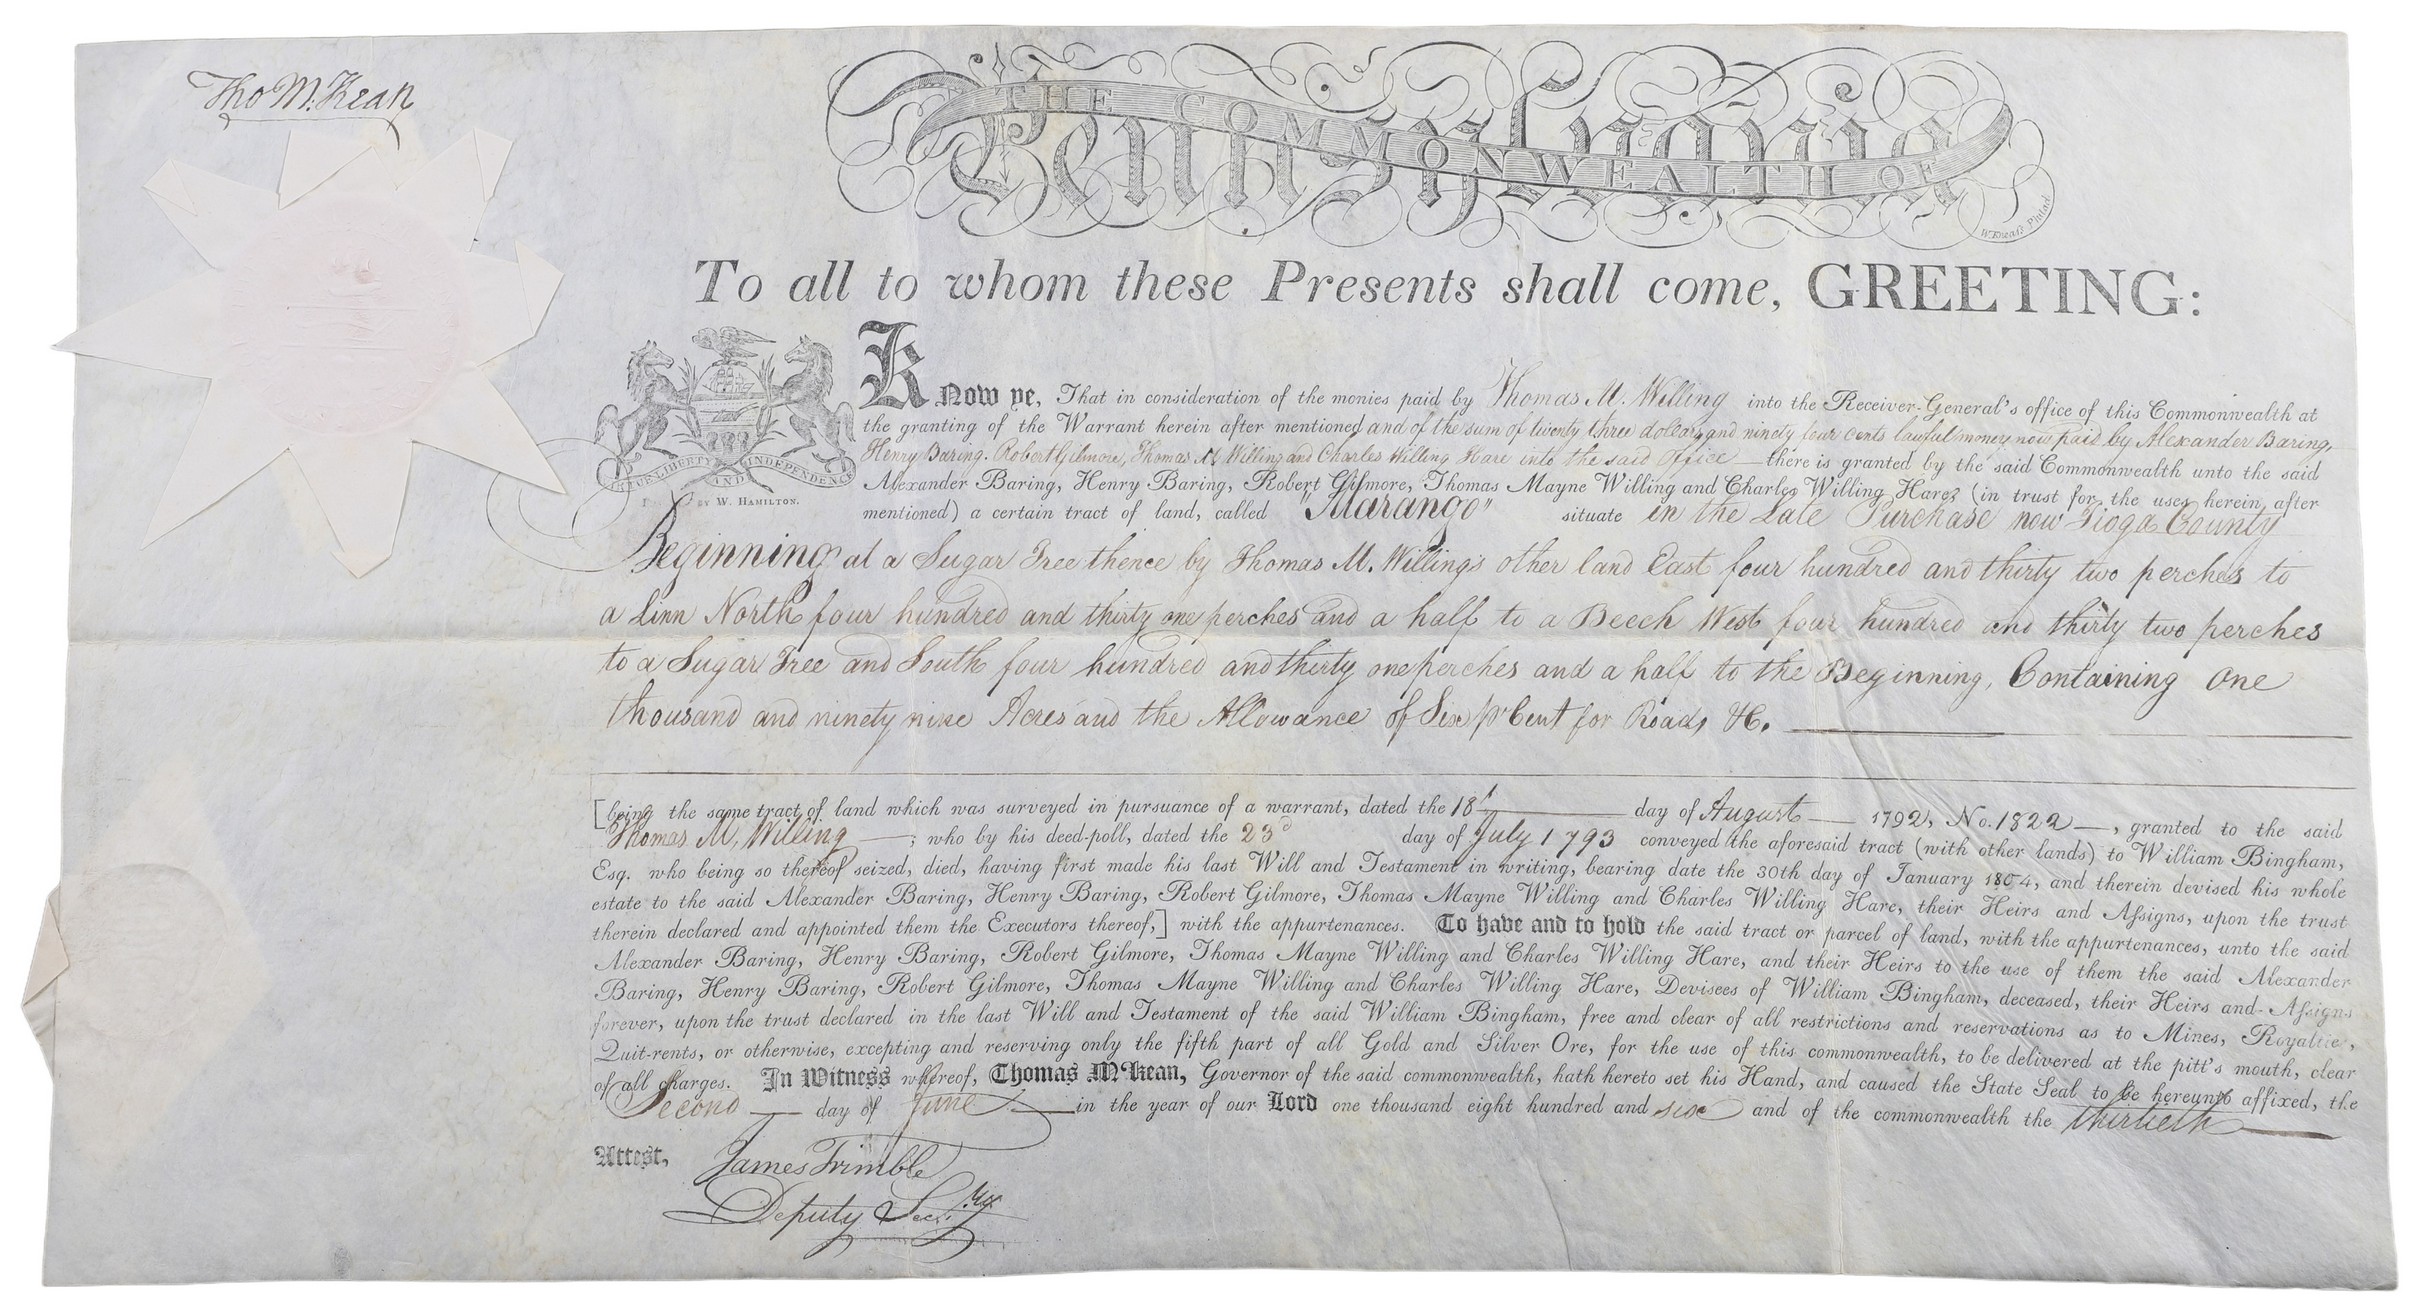 Tho M:Kean
THE COMMONWEALTH OF
Pennsylvania
W. Kneass Philad.
To all to whom these Presents shall come, GREETING:
VIRTUE LIBERTY AND INDEPENDENCE
BY W. HAMILTON.
Know ye, That in consideration of the monies paid by Thomas M. Willing into the Receiver-General's office of this Commonwealth at
the granting of the Warrant herein after mentioned and of the sum of twenty three dollars and ninety four cents lawful money now paid by Alexander Baring,
Henry Baring, Robert Gilmore, Thomas M Willing and Charles Willing Hare into the said Office — there is granted by the said Commonwealth unto the said
Alexander Baring, Henry Baring, Robert Gilmore, Thomas Mayne Willing and Charles Willing Hare, (in trust for the uses herein after
mentioned) a certain tract of land, called "Marango" situate in the Late Purchase now Tioga County
Beginning at a Sugar Tree thence by Thomas M. Willing's other land East four hundred and thirty two perches to
a Linn North four hundred and thirty one perches and a half to a Beech West four hundred and thirty two perches
to a Sugar Tree and South four hundred and thirty one perches and a half to the Beginning, Containing One
thousand and ninety nine Acres and the Allowance of Six p Cent for Roads &c.
[being the same tract of land which was surveyed in pursuance of a warrant, dated the 18th day of August 1792, No. 1822 —, granted to the said
Thomas M, Willing —; who by his deed-poll, dated the 23d day of July 1793 conveyed the aforesaid tract (with other lands) to William Bingham,
Esq. who being so thereof seized, died, having first made his last Will and Testament in writing, bearing date the 30th day of January 1804, and therein devised his whole
estate to the said Alexander Baring, Henry Baring, Robert Gilmore, Thomas Mayne Willing and Charles Willing Hare, their Heirs and Assigns, upon the trust
therein declared and appointed them the Executors thereof,] with the appurtenances. To have and to hold the said tract or parcel of land, with the appurtenances, unto the said
Alexander Baring, Henry Baring, Robert Gilmore, Thomas Mayne Willing and Charles Willing Hare, and their Heirs to the use of them the said Alexander
Baring, Henry Baring, Robert Gilmore, Thomas Mayne Willing and Charles Willing Hare, Devisees of William Bingham, deceased, their Heirs and Assigns
forever, upon the trust declared in the last Will and Testament of the said William Bingham, free and clear of all restrictions and reservations as to Mines, Royalties,
Quit-rents, or otherwise, excepting and reserving only the fifth part of all Gold and Silver Ore, for the use of this commonwealth, to be delivered at the pitt's mouth, clear
of all charges. In Witness whereof, Thomas M'Kean, Governor of the said commonwealth, hath hereto set his Hand, and caused the State Seal to be hereunto affixed, the
Second — day of June — in the year of our Lord one thousand eight hundred and six and of the commonwealth the thirtieth
Attest, James Trimble
Deputy Secry